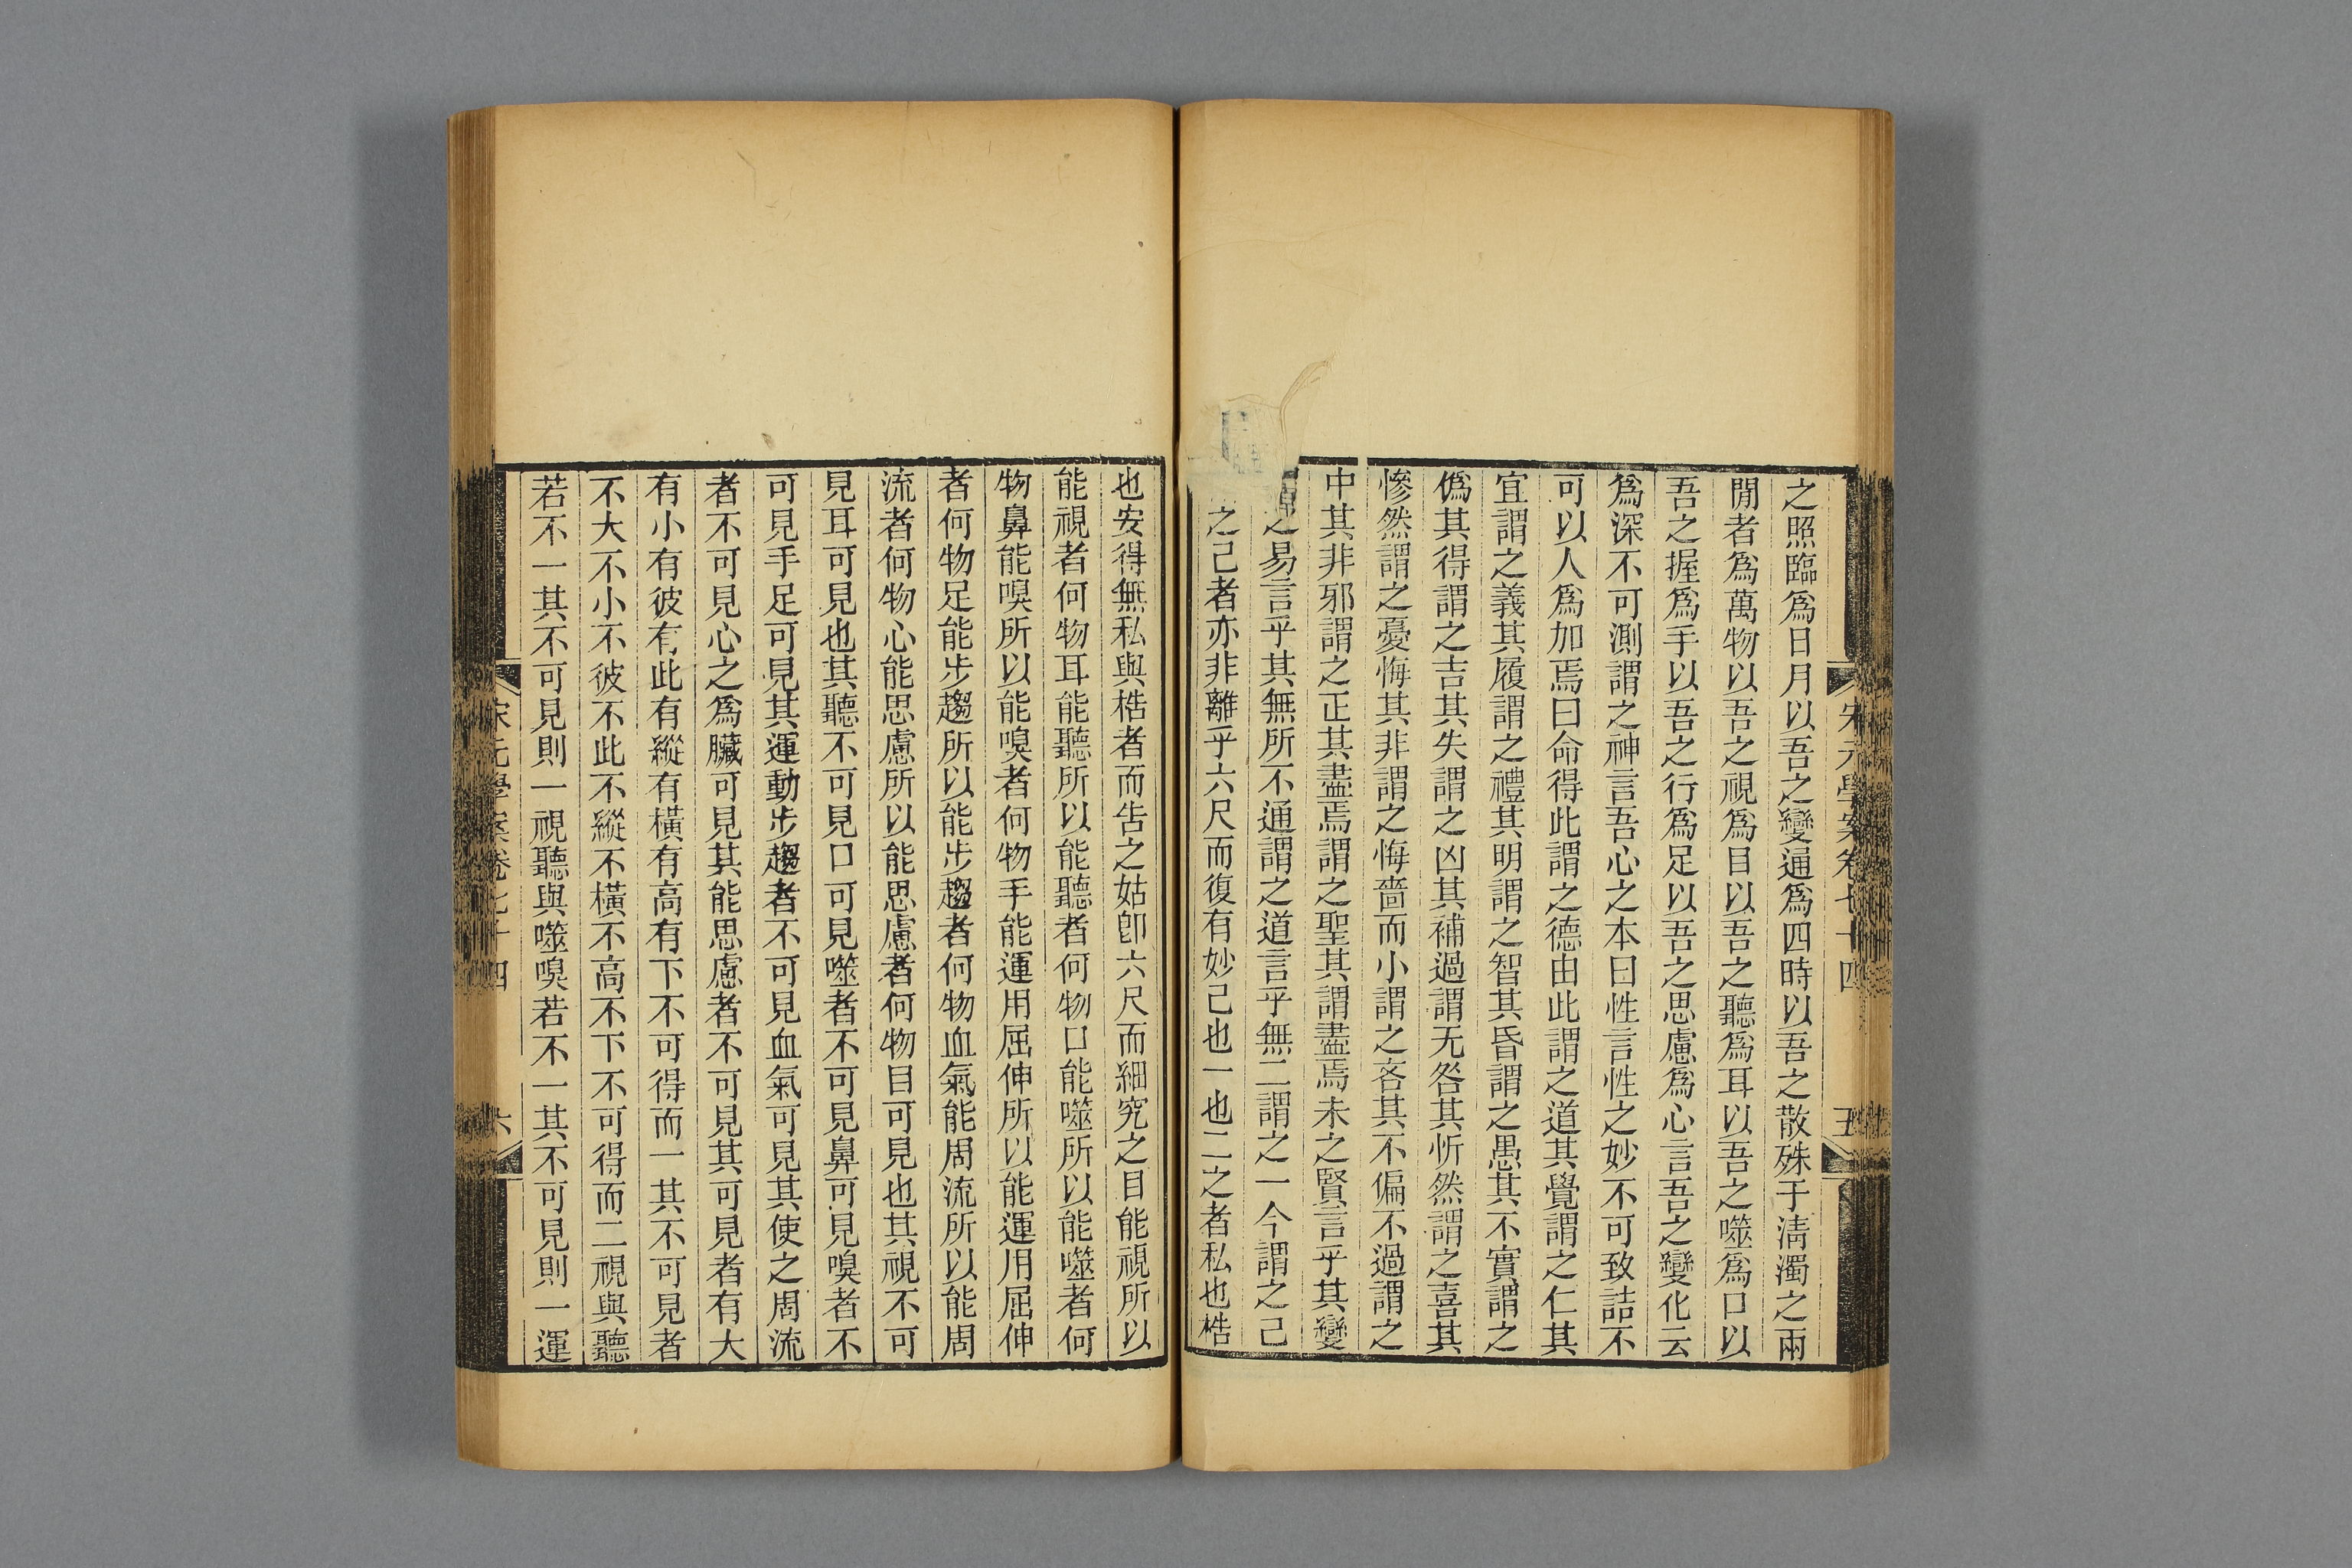 宋元學案卷七十四
五
之照臨爲日月以吾之變通爲四時以吾之散殊于淸濁之兩
閒者爲萬物以吾之視爲目以吾之聽爲耳以吾之噬爲口以
吾之握爲手以吾之行爲足以吾之思慮爲心言吾之變化云
爲深不可測謂之神言吾心之本曰性言性之妙不可致詰不
可以人爲加焉曰命得此謂之德由此謂之道其覺謂之仁其
宜謂之義其履謂之禮其明謂之智其昏謂之愚其不實謂之
僞其得謂之吉其失謂之凶其補過謂无咎其忻然謂之喜其
慘然謂之憂悔其非謂之悔嗇而小謂之吝其不偏不過謂之
中其非邪謂之正其盡焉謂之聖其謂盡焉未之賢言乎其變
之易言乎其無所不通謂之道言乎無二謂之一今謂之己
之己者亦非離乎六尺而復有妙己也一也二之者私也梏
也安得無私與梏者而告之姑卽六尺而細究之目能視所以
能視者何物耳能聽所以能聽者何物口能噬所以能噬者何
物鼻能嗅所以能嗅者何物手能運用屈伸所以能運用屈伸
者何物足能步趨所以能步趨者何物血氣能周流所以能周
流者何物心能思慮所以能思慮者何物目可見也其視不可
見耳可見也其聽不可見口可見噬者不可見鼻可見嗅者不
可見手足可見其運動步趨者不可見血氣可見其使之周流
者不可見心之爲臟可見其能思慮者不可見其可見者有大
有小有彼有此有縱有橫有高有下不可得而一其不可見者
不大不小不彼不此不縱不橫不高不下不可得而二視與聽
若不一其不可見則一視聽與噬嗅若不一其不可見則一運
宋元學案卷七十四
六